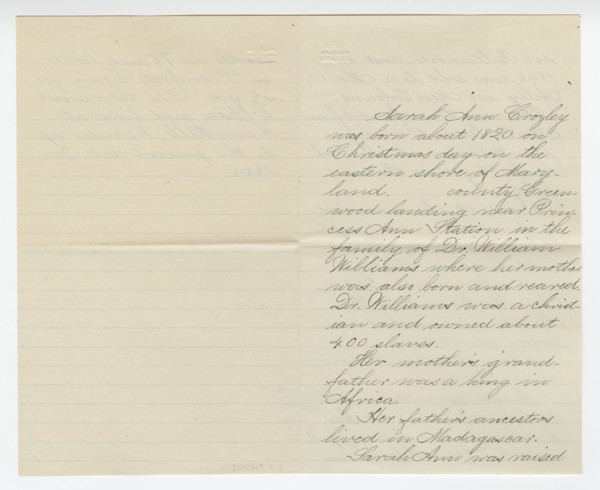 Sarah Ann Croxley
was born about 1820 on
Christmas day on the
eastern shore of Mary-
land. county Green-
wood landing near Prin-
cess Ann Station in the
family of Dr. William
Williams where her mother
was also born and reared.
Dr. Williams was a christ-
ian and owned about
400 slaves.
Her mother's grand-
father was a king in
Africa.
Her father's ancestors
lived in Madagascar.
Sarah Ann was raised